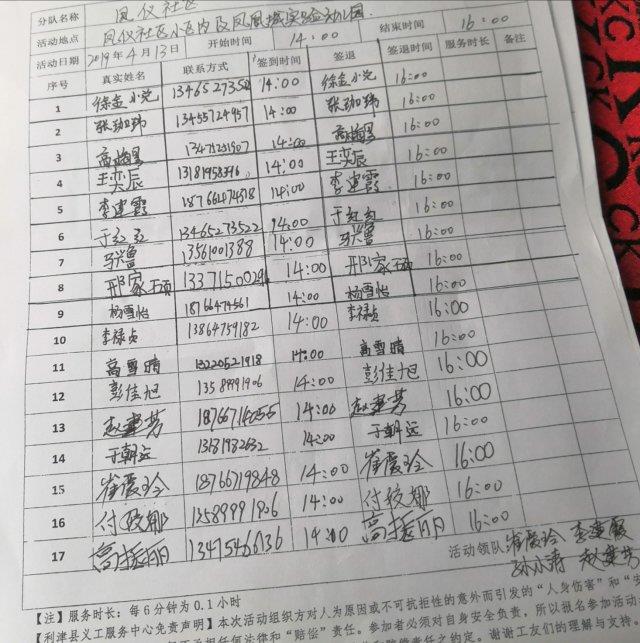 分队名称 凤仪社区
活动地点 凤仪社区小区内及凤凰城实验幼儿园.
活动日期 2019年4月13日 开始时间 14:00 结束时间 16:00
序号 真实姓名 联系方式 签到时间 签退 签退时间 服务时长 备注
1 徐金小 1346527352 14:00 徐金小 16:00
2 张珈玮 13455724957 14:00 张珈玮 16:00
3 高 13471231907 14:00 高 16:00
4 王奕辰 13181958396 14:00 王奕辰 16:00
5 李建霞 18766474518 14:00 李建霞 16:00
6 于红红 13465273522 14:00 于红红 16:00
7 马兴鲁 13561001388 14:00 马兴鲁 16:00
8 邢家硕 1337150029 14:00 邢家硕 16:00
9 杨雪怡 18766474561 14:00 杨雪怡 16:00
10 李禄贞 13864759182 14:00 李禄贞 16:00
11 高雪晴 13220521918 14:00 高雪晴 16:00
12 彭佳旭 13589991906 14:00 彭佳旭 16:00
13 赵建芳 18766714055 14:00 赵建芳 16:00
14 于朝远 13181982632 14:00 于朝远 16:00
15 崔爱玲 18766719848 14:00 崔爱玲 16:00
16 付姣娜 13589991906 14:00 付姣娜 16:00
17 高振丽 13475466136 14:00 高振丽 16:00
活动领队 崔爱玲 李建霞
孙小涛 赵建芳
【注】服务时长：每6分钟为0.1小时
【利津县义工服务中心免责声明】本次活动组织方对人为原因或不可抗拒性的意外而引发的“人身伤害”和
任何法律和“赔偿”责任。参加者必须对自身安全负责，所以报名参加活动
责任之规定。谢谢工友们的理解与支持。